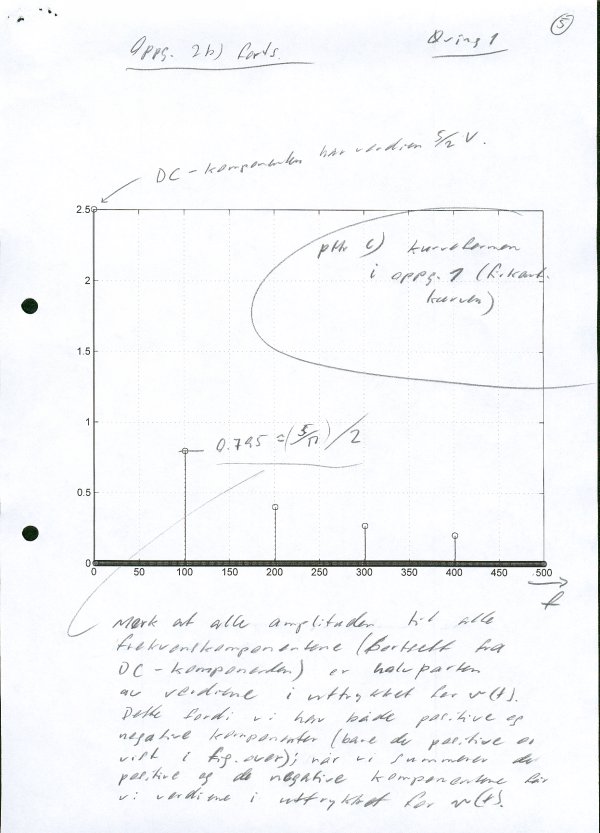 Øving 1
5
Oppg. 2b) forts.
DC-komponenten har verdien 5/2 V.
pkt c) kurveformen
i oppg. 1 (firkant-
kurven)
2.5
2
1.5
1
0.5
0
0.795 = (5/π)/2
0 50 100 150 200 250 300 350 400 450 500
f
Merk at alle amplituden til alle
frekvenskomponentene (bortsett fra
DC-komponenten) er halvparten
av verdiene i uttrykket for v(t).
Dette fordi vi har både positive og
negative komponenter (bare de positive er
vist i fig. over); når vi summerer de
positive og de negative komponentene får
vi verdiene i uttrykket for v(t).